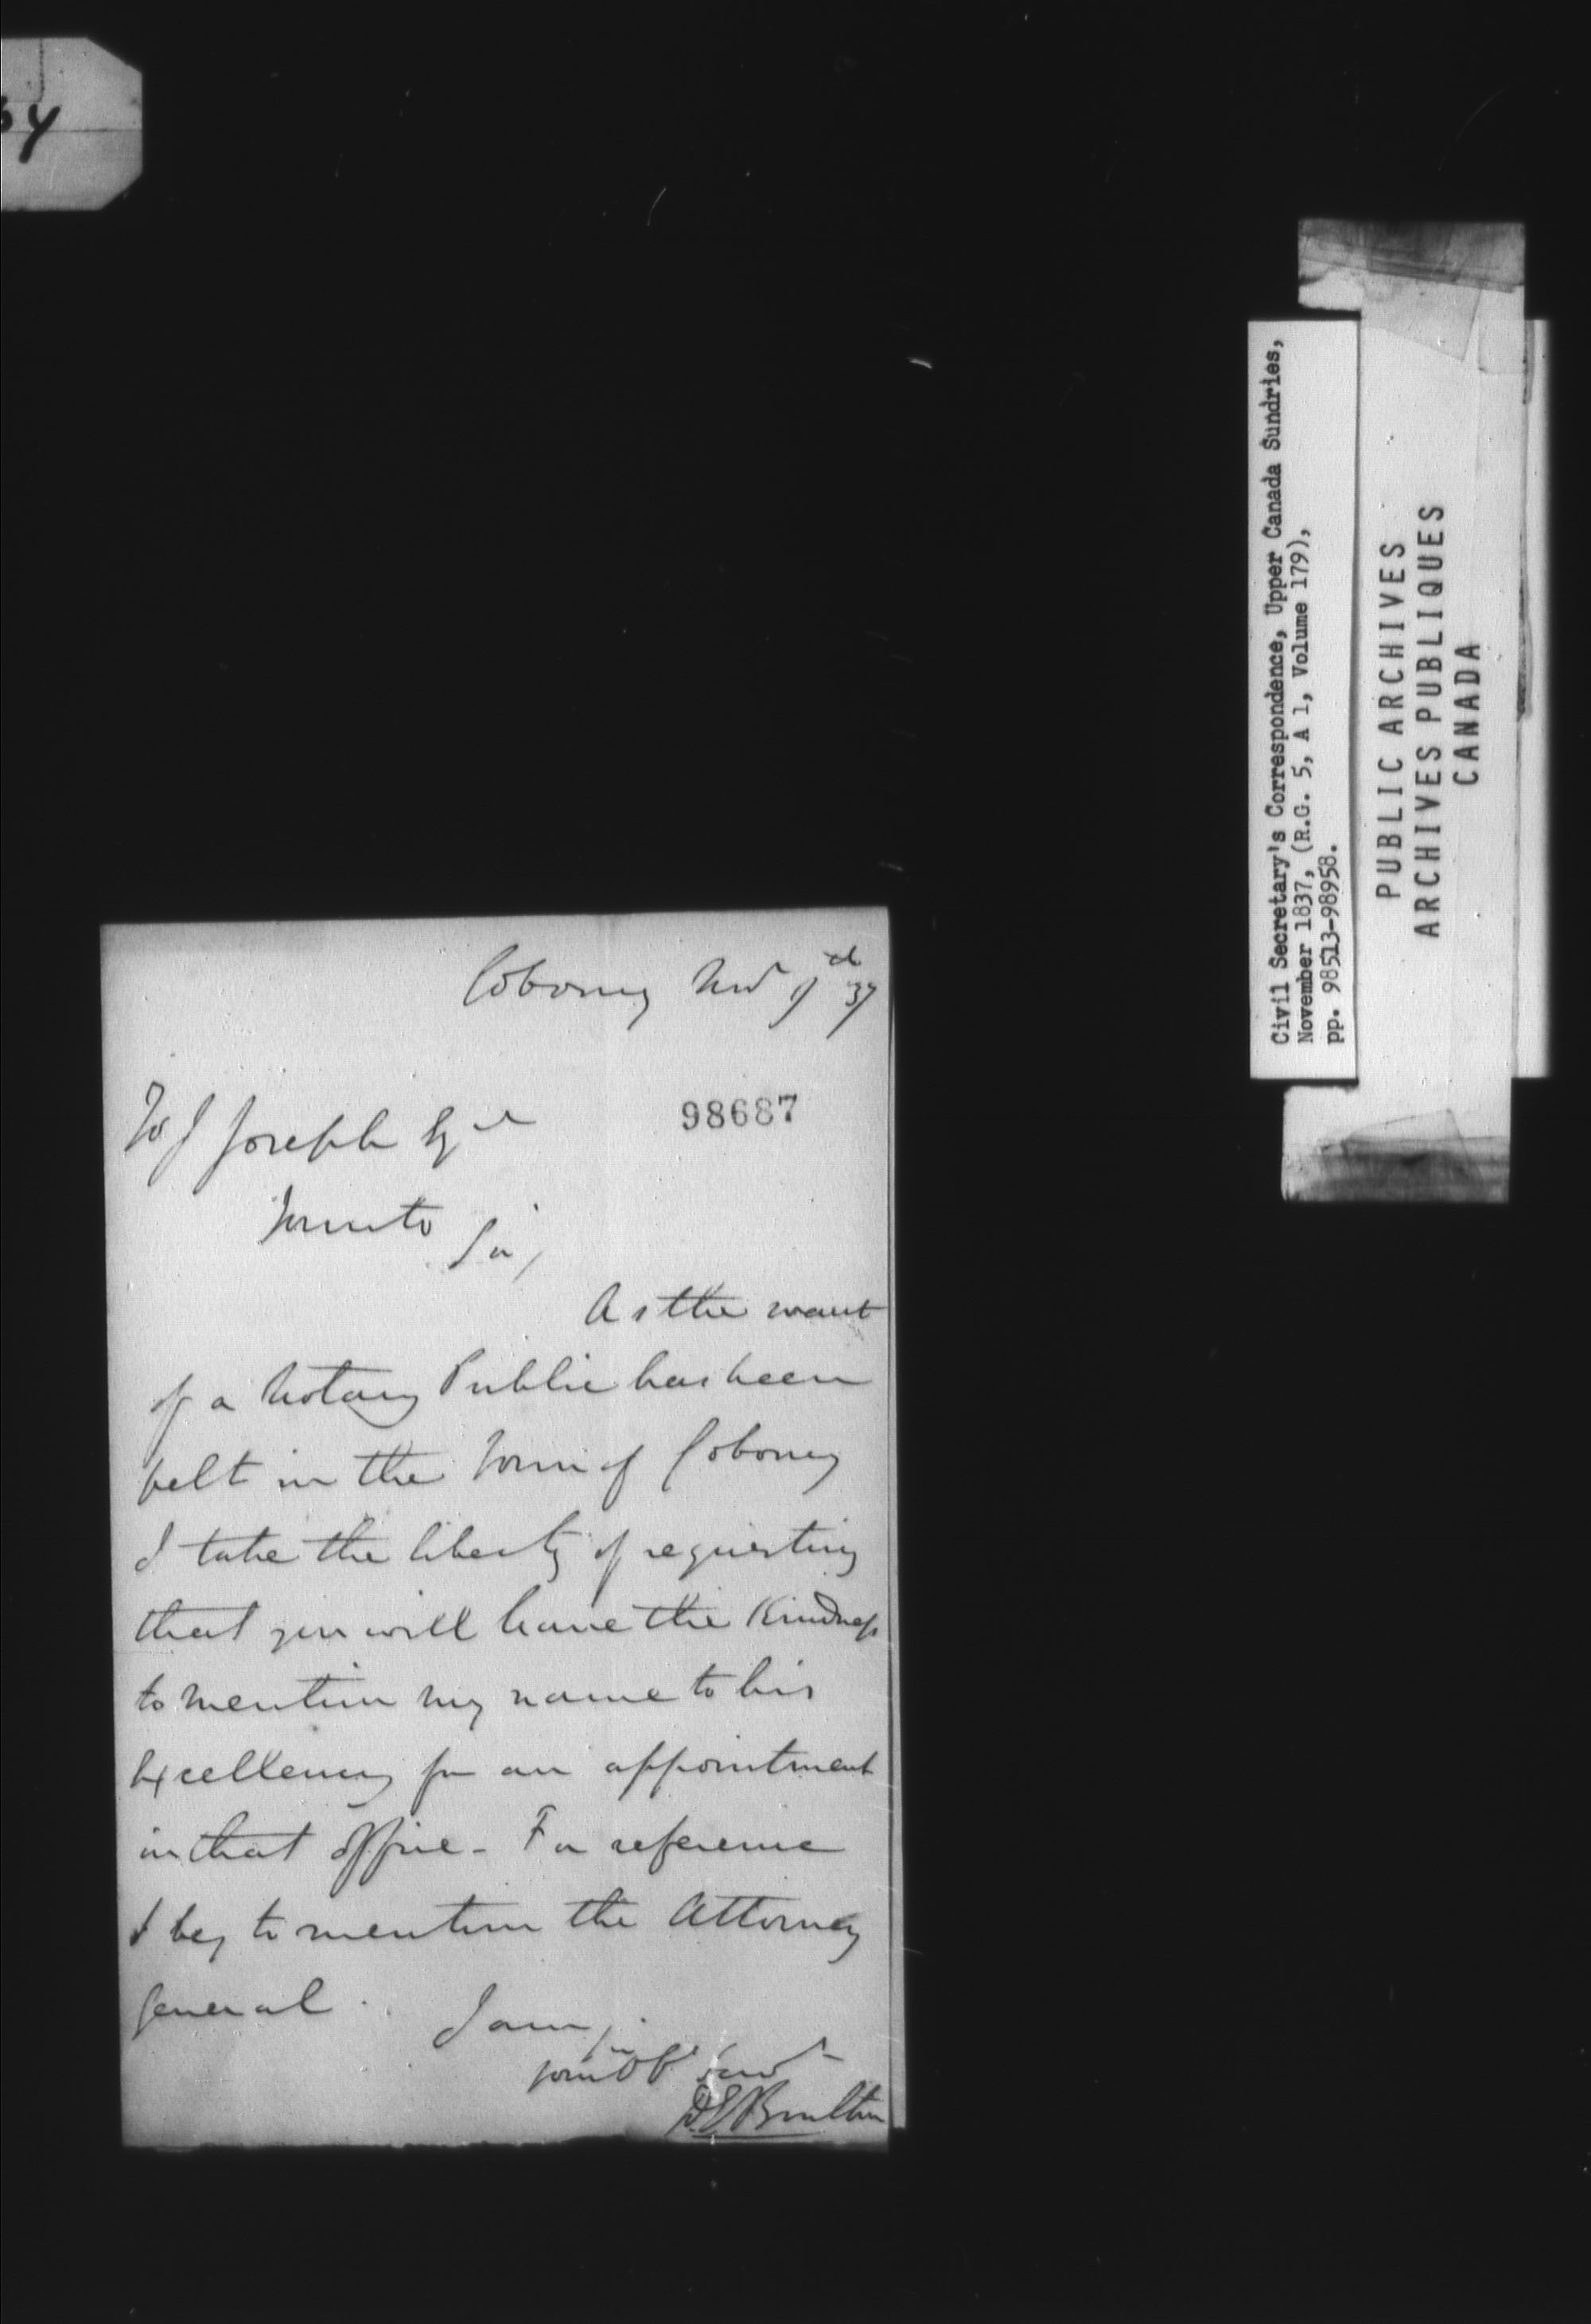 Cobourg Nov 9d 37
98687
To J Joseph Esqre
Toronto
Sir,
As the want
of a Notary Public has been
felt in the Town of Cobourg
I take the liberty of requesting
that you will have the Kindness
to mention my name to his
Excellency for an appointment
in that office - For reference
I beg to mention the Attorney
General.
I am,
Sir
your Obt Servt
D E Boulton
Civil Secretary's Correspondence, Upper Canada Sundries,
November 1837, (R.G. 5, A 1, Volume 179),
pp. 98513-98958.
PUBLIC ARCHIVES
ARCHIVES PUBLIQUES
CANADA